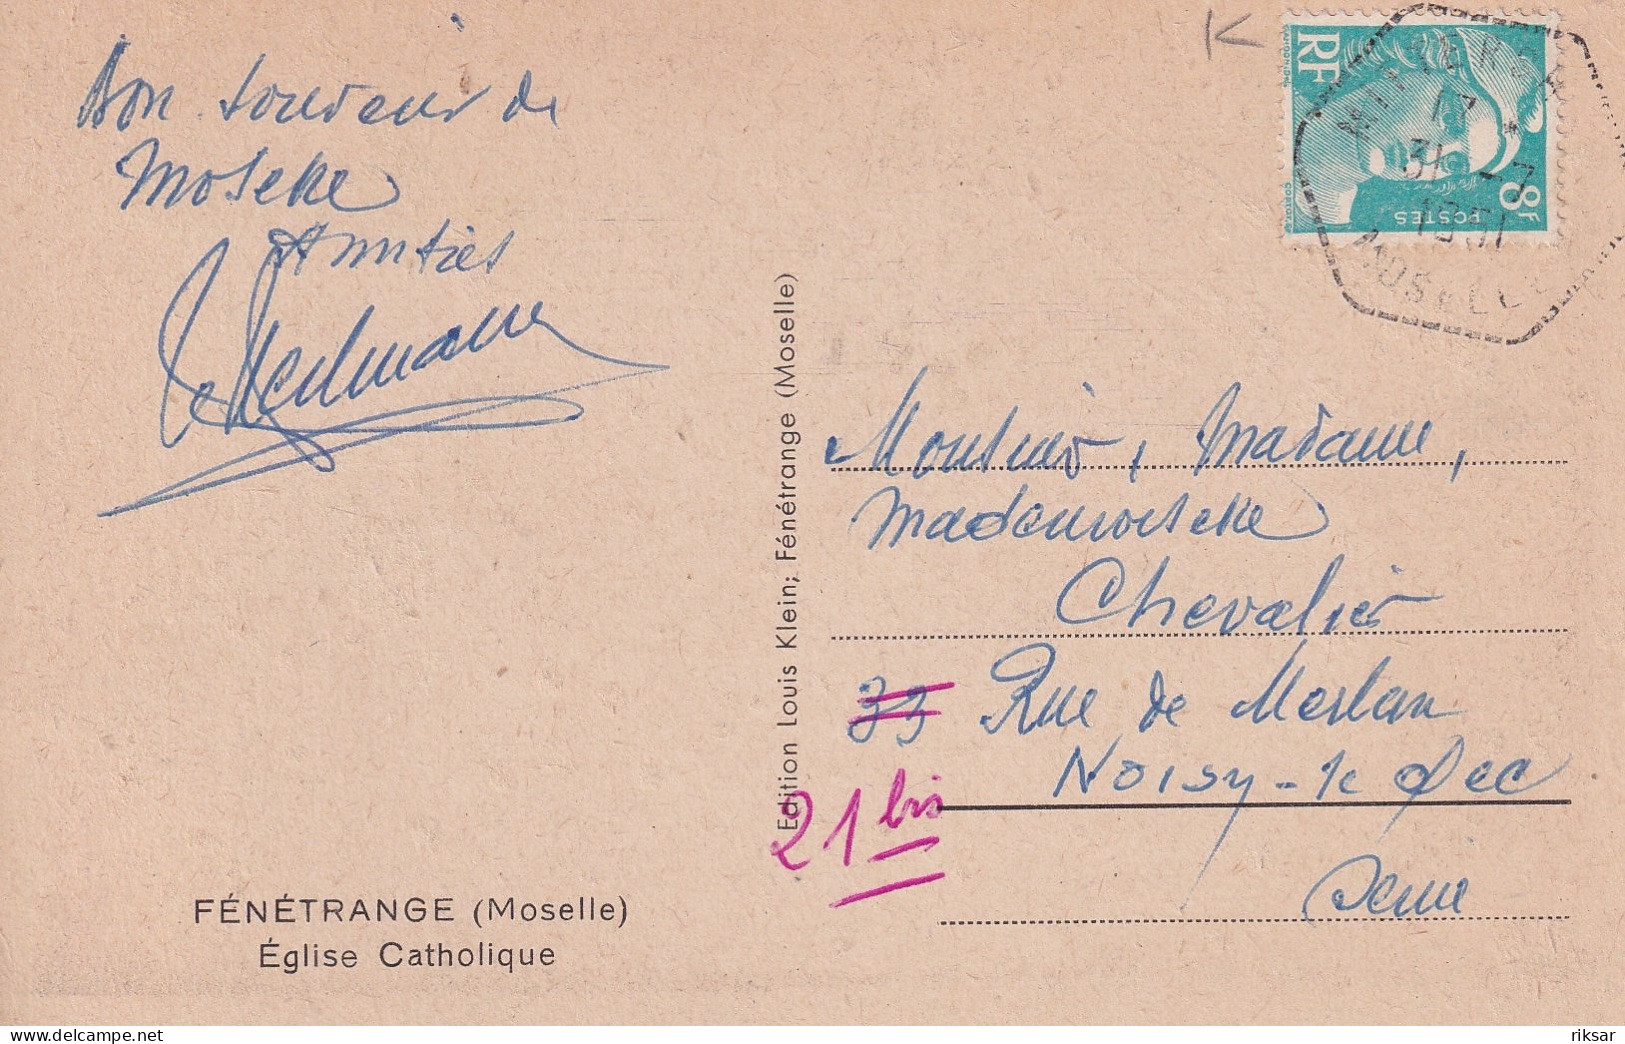 K
Bon souvenir de
Moselle
Amitiés
RF
8F
POSTES
17
31 -7
1951
MOSELLE
Edition Louis Klein; Fénétrange (Moselle)
Monsieur, Madame,
Mademoiselle
Chevalier
33 Rue de Merlan
21 bis
Noisy-le Sec
Seine
FÉNÉTRANGE (Moselle)
Église Catholique
delcampe.net
riksar